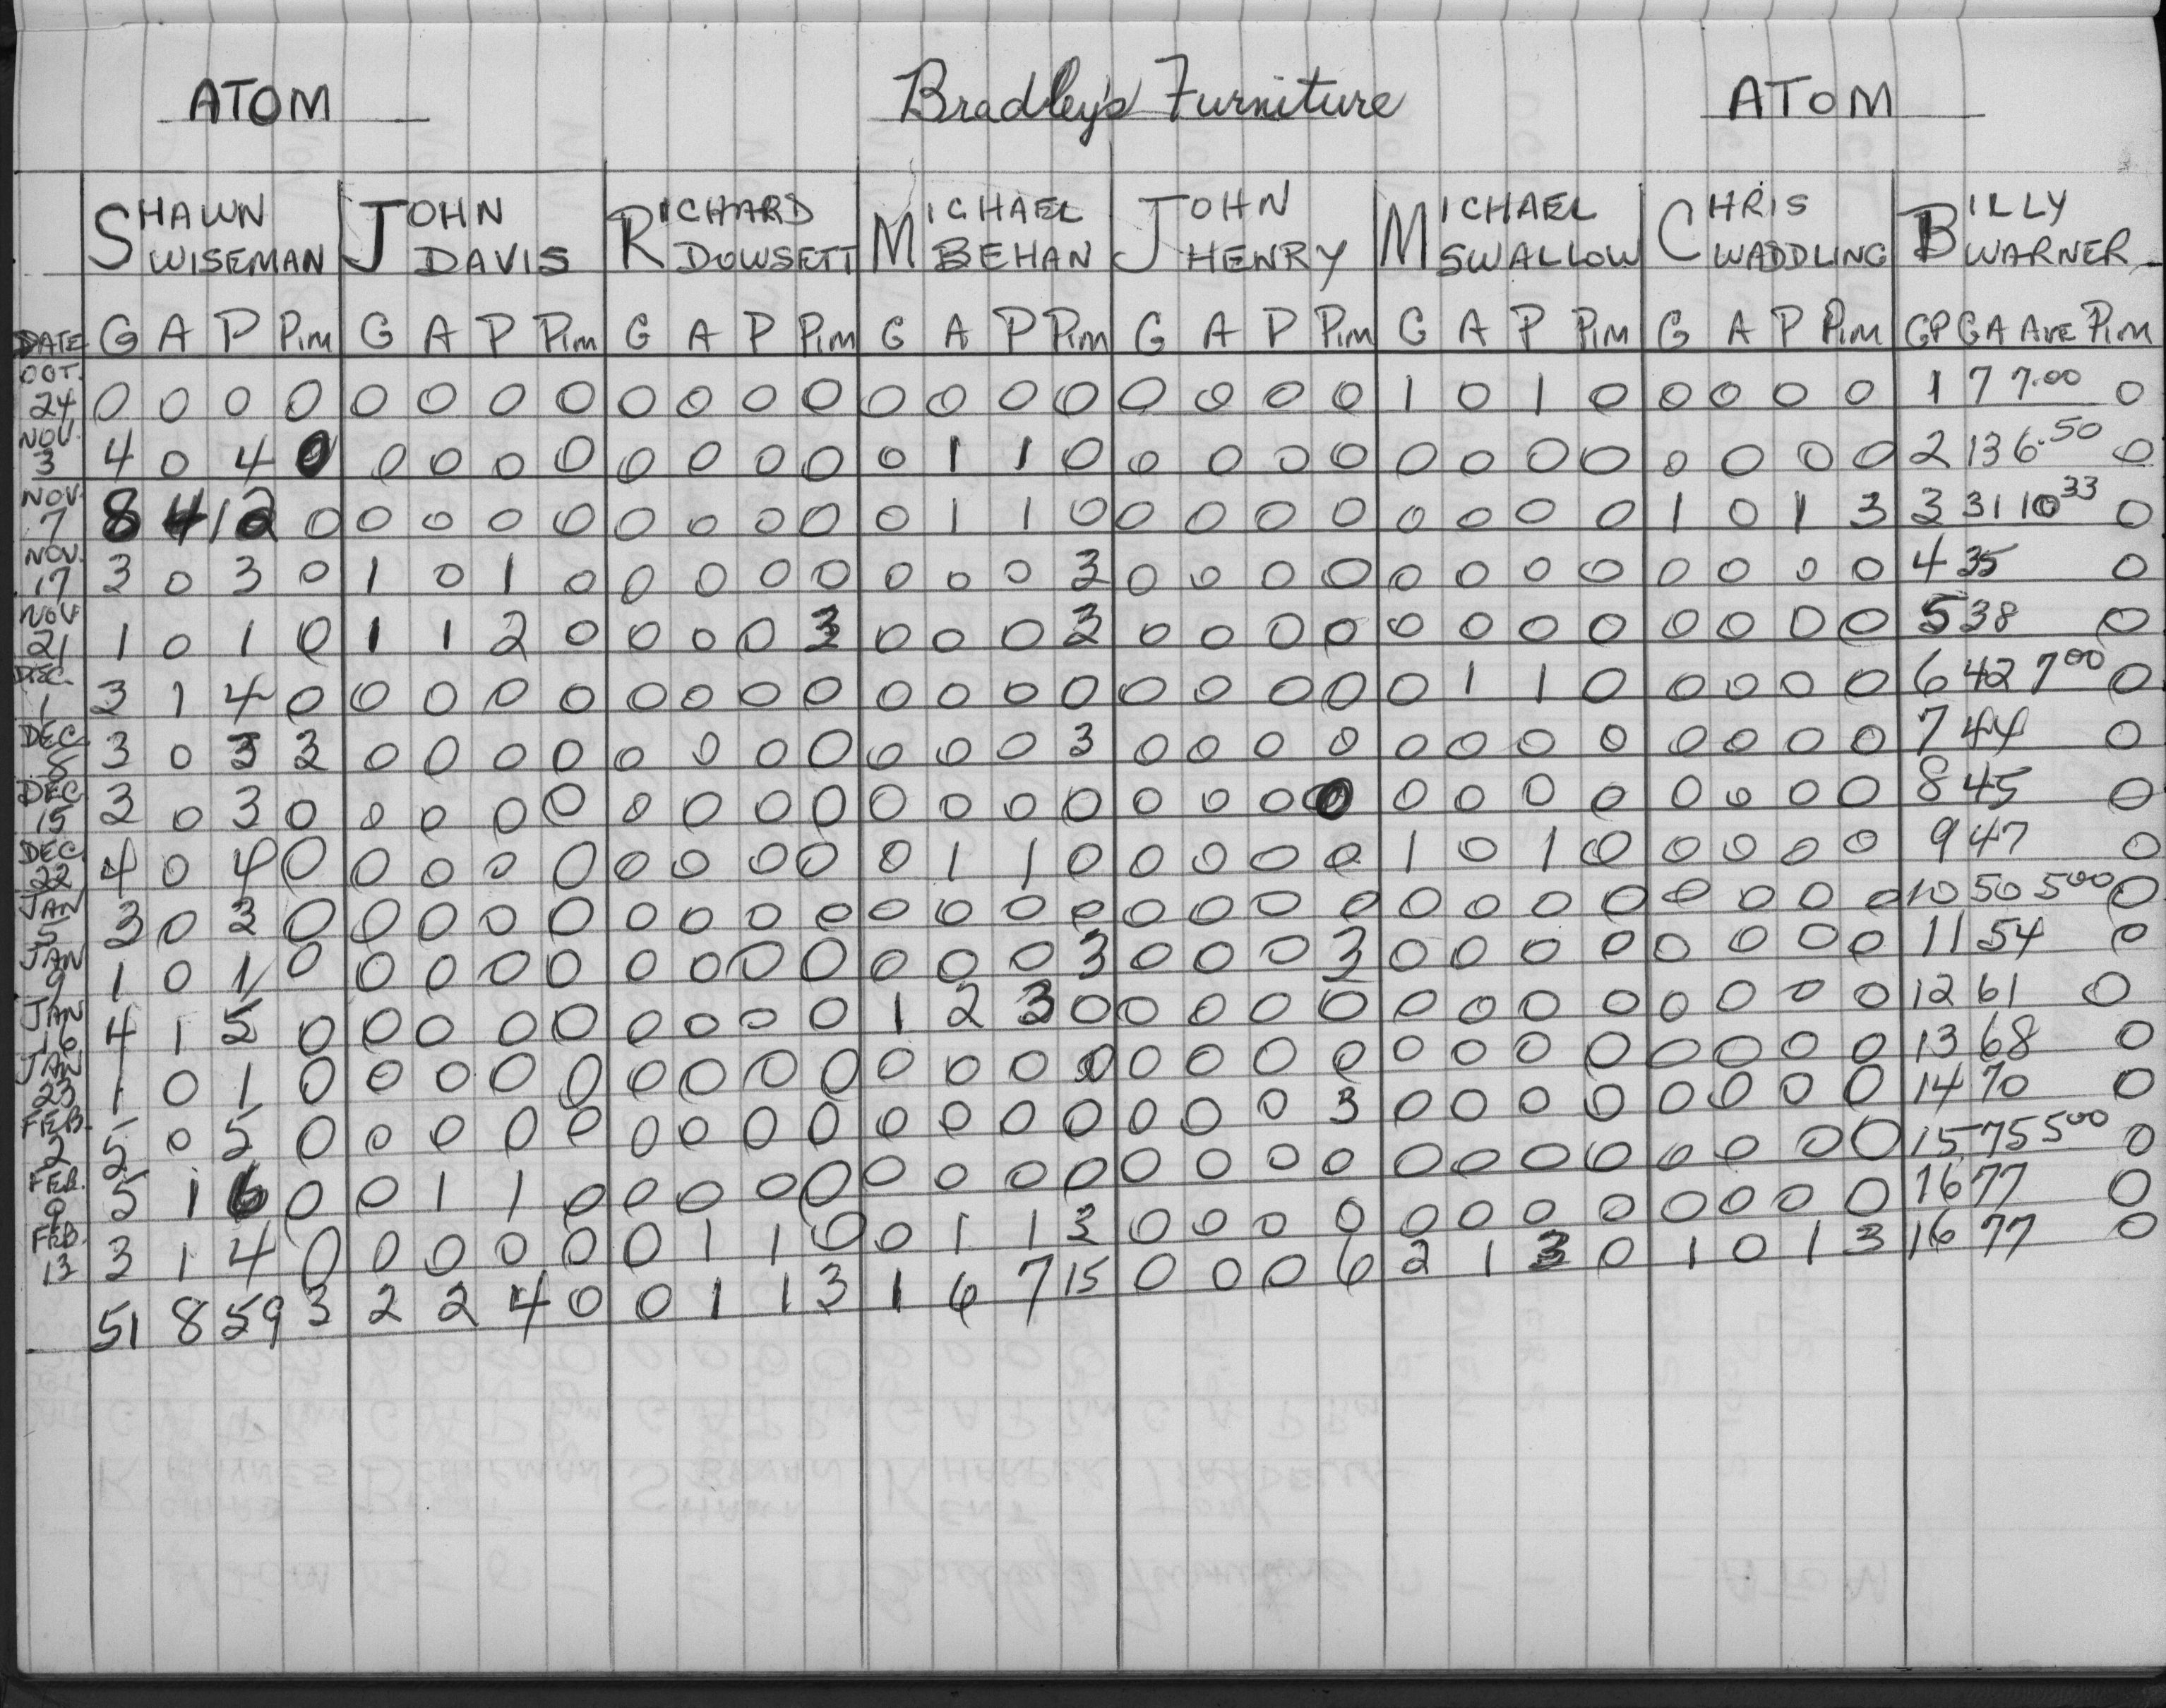 ATOM Bradley's Furniture ATOM
SHAWN JOHN RICHARD MICHAEL JOHN MICHAEL CHRIS BILLY
WISEMAN DAVIS DOWSETT BEHAN HENRY SWALLOW WADDLING WARNER
DATE G A P PIM G A P PIM G A P PIM G A P PIM G A P PIM G A P PIM G A P PIM GP GA AVE PIM
OCT. 24 0 0 0 0 0 0 0 0 0 0 0 0 0 0 0 0 0 0 0 0 1 0 1 0 0 0 0 0 1 7 7.00 0
NOV. 3 4 0 4 0 0 0 0 0 0 0 0 0 0 1 1 0 0 0 0 0 0 0 0 0 0 0 0 0 2 13 6.50 0
NOV. 7 8 4 12 0 0 0 0 0 0 0 0 0 0 1 1 0 0 0 0 0 0 0 0 0 1 0 1 3 3 31 10 33 0
NOV. 17 3 0 3 0 1 0 1 0 0 0 0 0 0 0 0 3 0 0 0 0 0 0 0 0 0 0 0 0 4 35 0
NOV 21 1 0 1 0 1 1 2 0 0 0 0 3 0 0 0 3 0 0 0 0 0 0 0 0 0 0 0 0 5 38 0
DEC. 1 3 1 4 0 0 0 0 0 0 0 0 0 0 0 0 0 0 0 0 0 0 1 1 0 0 0 0 0 6 42 7 00 0
DEC 8 3 0 3 3 0 0 0 0 0 0 0 0 0 0 0 3 0 0 0 0 0 0 0 0 0 0 0 0 7 44 0
DEC 15 3 0 3 0 0 0 0 0 0 0 0 0 0 0 0 0 0 0 0 0 0 0 0 0 0 0 0 0 8 45 0
DEC 22 4 0 4 0 0 0 0 0 0 0 0 0 0 1 1 0 0 0 0 0 1 0 1 0 0 0 0 0 9 47 0
JAN 5 3 0 3 0 0 0 0 0 0 0 0 0 0 0 0 0 0 0 0 0 0 0 0 0 0 0 0 0 10 50 5 00 0
JAN 9 1 0 1 0 0 0 0 0 0 0 0 0 0 0 0 3 0 0 0 3 0 0 0 0 0 0 0 0 11 54 0
JAN 16 4 1 5 0 0 0 0 0 0 0 0 0 1 2 3 0 0 0 0 0 0 0 0 0 0 0 0 0 12 61 0
JAN 23 1 0 1 0 0 0 0 0 0 0 0 0 0 0 0 0 0 0 0 0 0 0 0 0 0 0 0 0 13 68 0
FEB. 2 5 0 5 0 0 0 0 0 0 0 0 0 0 0 0 0 0 0 0 3 0 0 0 0 0 0 0 0 14 70 0
FEB. 9 5 1 6 0 0 1 1 0 0 0 0 0 0 0 0 0 0 0 0 0 0 0 0 0 0 0 0 0 15 75 5 00 0
FEB. 13 3 1 4 0 0 0 0 0 0 1 1 0 0 1 1 3 0 0 0 0 0 0 0 0 0 0 0 0 16 77 0
51 8 59 3 2 2 4 0 0 1 1 3 1 6 7 15 0 0 0 6 2 1 3 0 1 0 1 3 16 77 0